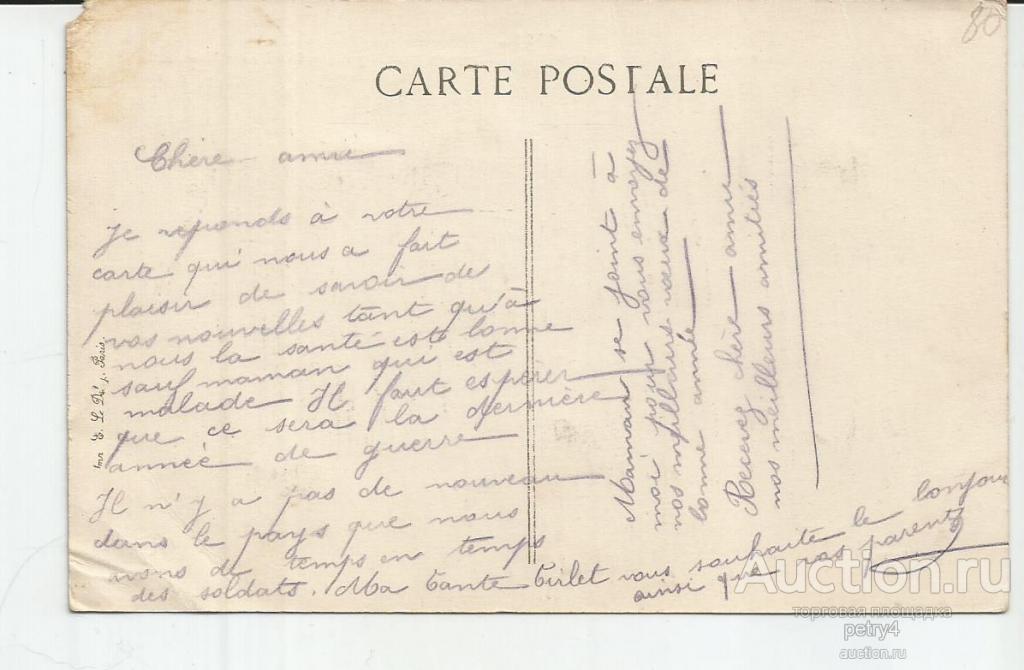 80
CARTE POSTALE
Chère amie
Je réponds à votre
carte qui nous a fait
plaisir de savoir de
vos nouvelles tant qu'à
nous la santé est bonne
sauf maman qui est
malade Il faut espérer
que ce sera la dernière
année de guerre
Il n'y a pas de nouveau
dans le pays que nous
avons de temps en temps
des soldats. Ma tante vous souhaite le bonjour
ainsi que vos parents
Maman se joint à
moi pour vous envoyez
nos meilleurs vœux de
bonne année
Recevez chère amie
nos meilleurs amitiés
Imp. E. Le Deley, Paris.
Auction.ru
торговая площадка
petry4
auction.ru